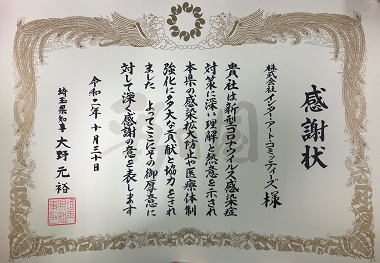 感謝状
株式会社インター・アート・コミッティーズ 様
貴社は新型コロナウイルス感染症
対策に深い理解と熱意を示され
本県の感染拡大防止や医療体制
強化に多大な貢献と協力をされ
ました よってここにその御厚意に
対して深く感謝の意を表します
令和二年 十月三十日
埼玉県知事 大野元裕